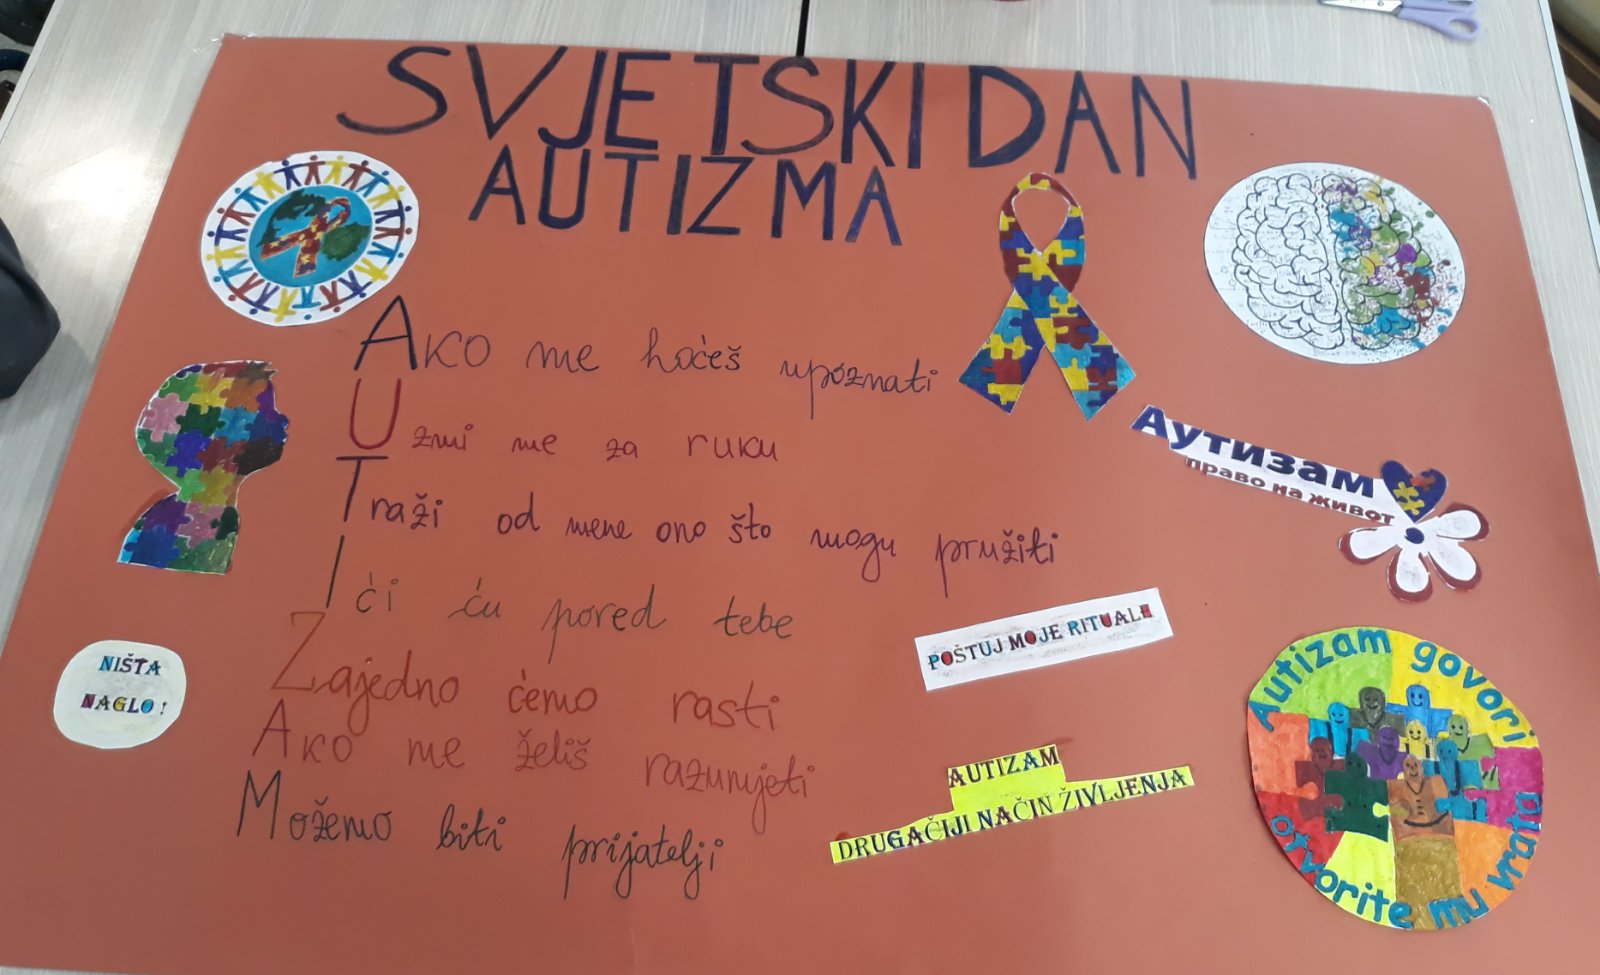 SVJETSKI DAN
AUTIZMA
AKO me hoćeš upoznati
Uzmi me za ruku
Traži od mene ono što mogu pružiti
Ići ću pored tebe
Zajedno ćemo rasti
Ako me želiš razumjeti
Možemo biti prijatelji
NIŠTA
NAGLO!
Аутизам
право на живот
POŠTUJ MOJE RITUALE
AUTIZAM
DRUGAČIJI NAČIN ŽIVLJENJA
Autizam govori
otvorite mu vrata